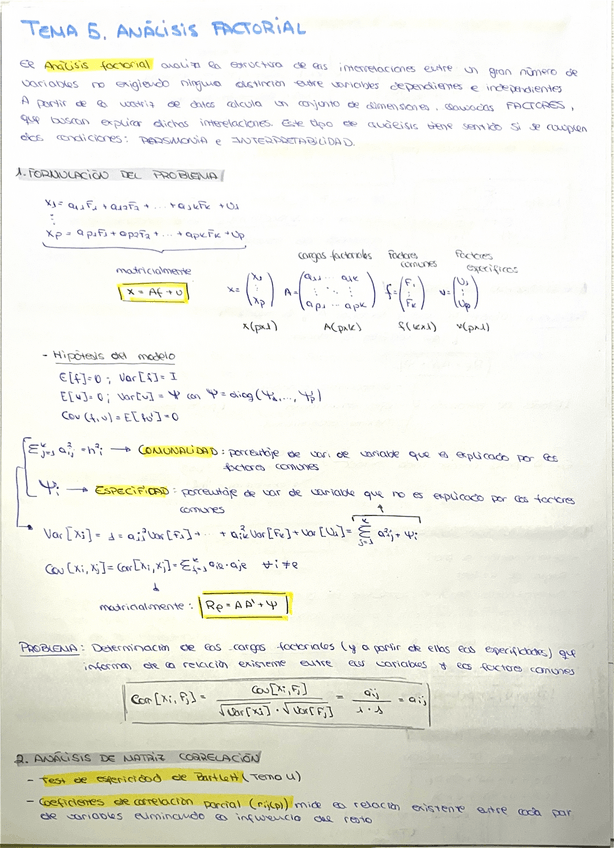 TEMA 5. ANÁLISIS FACTORIAL
El Análisis factorial analiza la estructura de las interrelaciones entre un gran número de
variables no exigiendo ninguna distinción entre variables dependientes e independientes
A partir de la matriz de datos calcula un conjunto de dimensiones, llamadas FACTORES,
que buscan explicar dichas interrelaciones. Este tipo de análisis tiene sentido si se cumplen
dos condiciones: PARSIMONIA e INTERPRETABILIDAD.
1. FORMULACIÓN DEL PROBLEMA
x₁ = a₁₁F₁ + a₁₂F₂ + ... + a₁ₖFₖ + U₁
⋮
xp = ap₁F₁ + ap₂F₂ + ... + apₖFₖ + Up
cargas factoriales Factores comunes Factores específicos
matricialmente
x = Af + u
x = (x₁ ⋮ xp) A = (a₁₁ ... a₁ₖ ⋮ ⋱ ⋮ ap₁ ... apₖ) f = (F₁ ⋮ Fₖ) u = (U₁ ⋮ Up)
x(px1) A(pxk) f(kx1) u(px1)
- Hipótesis del modelo
E[f]=0 ; Var[f]=I
E[u]=0 ; Var[u]=Ψ con Ψ=diag(Ψ₁,...,Ψp)
Cov(f,u)=E[fu']=0
Σʲ₌₁ᵏ a²ᵢⱼ = h²ᵢ → COMUNALIDAD: porcentaje de var. de variable que es explicado por los
factores comunes
Ψᵢ → ESPECIFIDAD: porcentaje de var de variable que no es explicado por los factores
comunes
Var[xᵢ] = 1 = aᵢ₁²Var[F₁] + ... + aᵢₖ²Var[Fₖ] + Var[Uᵢ] = Σⱼ₌₁ᵏ a²ᵢⱼ + Ψᵢ
matricialmente: Rp = AA' + Ψ
PROBLEMA: Determinación de las cargas factoriales (y a partir de ellas las especifidades) que
informan de la relación existente entre las variables y los factores comunes
Corr[xᵢ,Fⱼ] = Cov[xᵢ,Fⱼ] / √Var[xᵢ] · √Var[Fⱼ] = aᵢⱼ / 1·1 = aᵢⱼ
2. ANÁLISIS DE MATRIZ CORRELACIÓN
- Test de esfericidad de Bartlett (Tema 4)
- Coeficientes de correlación parcial (rij(p)) mide la relación existente entre cada par
de variables eliminando la influencia del resto